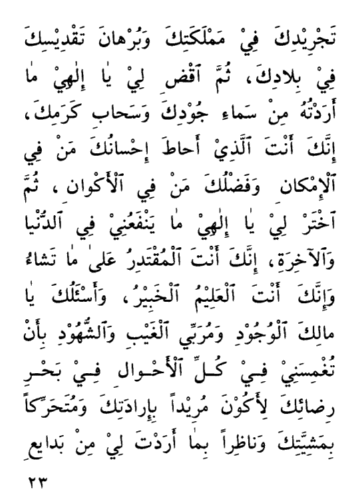 تَجْرِيْدِكَ فِيْ مَمْلَكَتِكَ وَبُرْهانَ تَقْدِيْسِكَ
فِيْ بِلادِكَ، ثُمَّ ٱقْضِ لِيْ يٰا إِلٰهِيْ مٰا
أَرَدْتُهُ مِنْ سَماءِ جُوْدِكَ وَسَحابِ كَرَمِكَ،
إِنَّكَ أَنْتَ ٱلَّذِيْ أَحاطَ إِحْسانُكَ مَنْ فِي
ٱلْإِمْكانِ وَفَضْلُكَ مَنْ فِي ٱلْأَكْوانِ، ثُمَّ
ٱخْتَرْ لِيْ يٰا إِلٰهِيْ مٰا يَنْفَعُنِيْ فِي ٱلدُّنْيا
وَٱلآخِرَةِ، إِنَّكَ أَنْتَ ٱلْمُقْتَدِرُ عَلىٰ مٰا تَشاءُ
وَإِنَّكَ أَنْتَ ٱلْعَلِيْمُ ٱلْخَبِيْرُ، وَأَسْئَلُكَ يٰا
مالِكَ ٱلْوُجُوْدِ وَمُرَبِّي ٱلْغَيْبِ وَٱلشُّهُوْدِ بِأَنْ
تُغْمِسَنِيْ فِيْ كُلِّ ٱلْأَحْوالِ فِيْ بَحْرِ
رِضائِكَ لِأَكُوْنَ مُرِيْداً بِإِرادَتِكَ وَمُتَحَرِّكاً
بِمَشِيَّتِكَ وَناظِراً بِمٰا أَرَدْتَ لِيْ مِنْ بَدايِعِ
٢٣